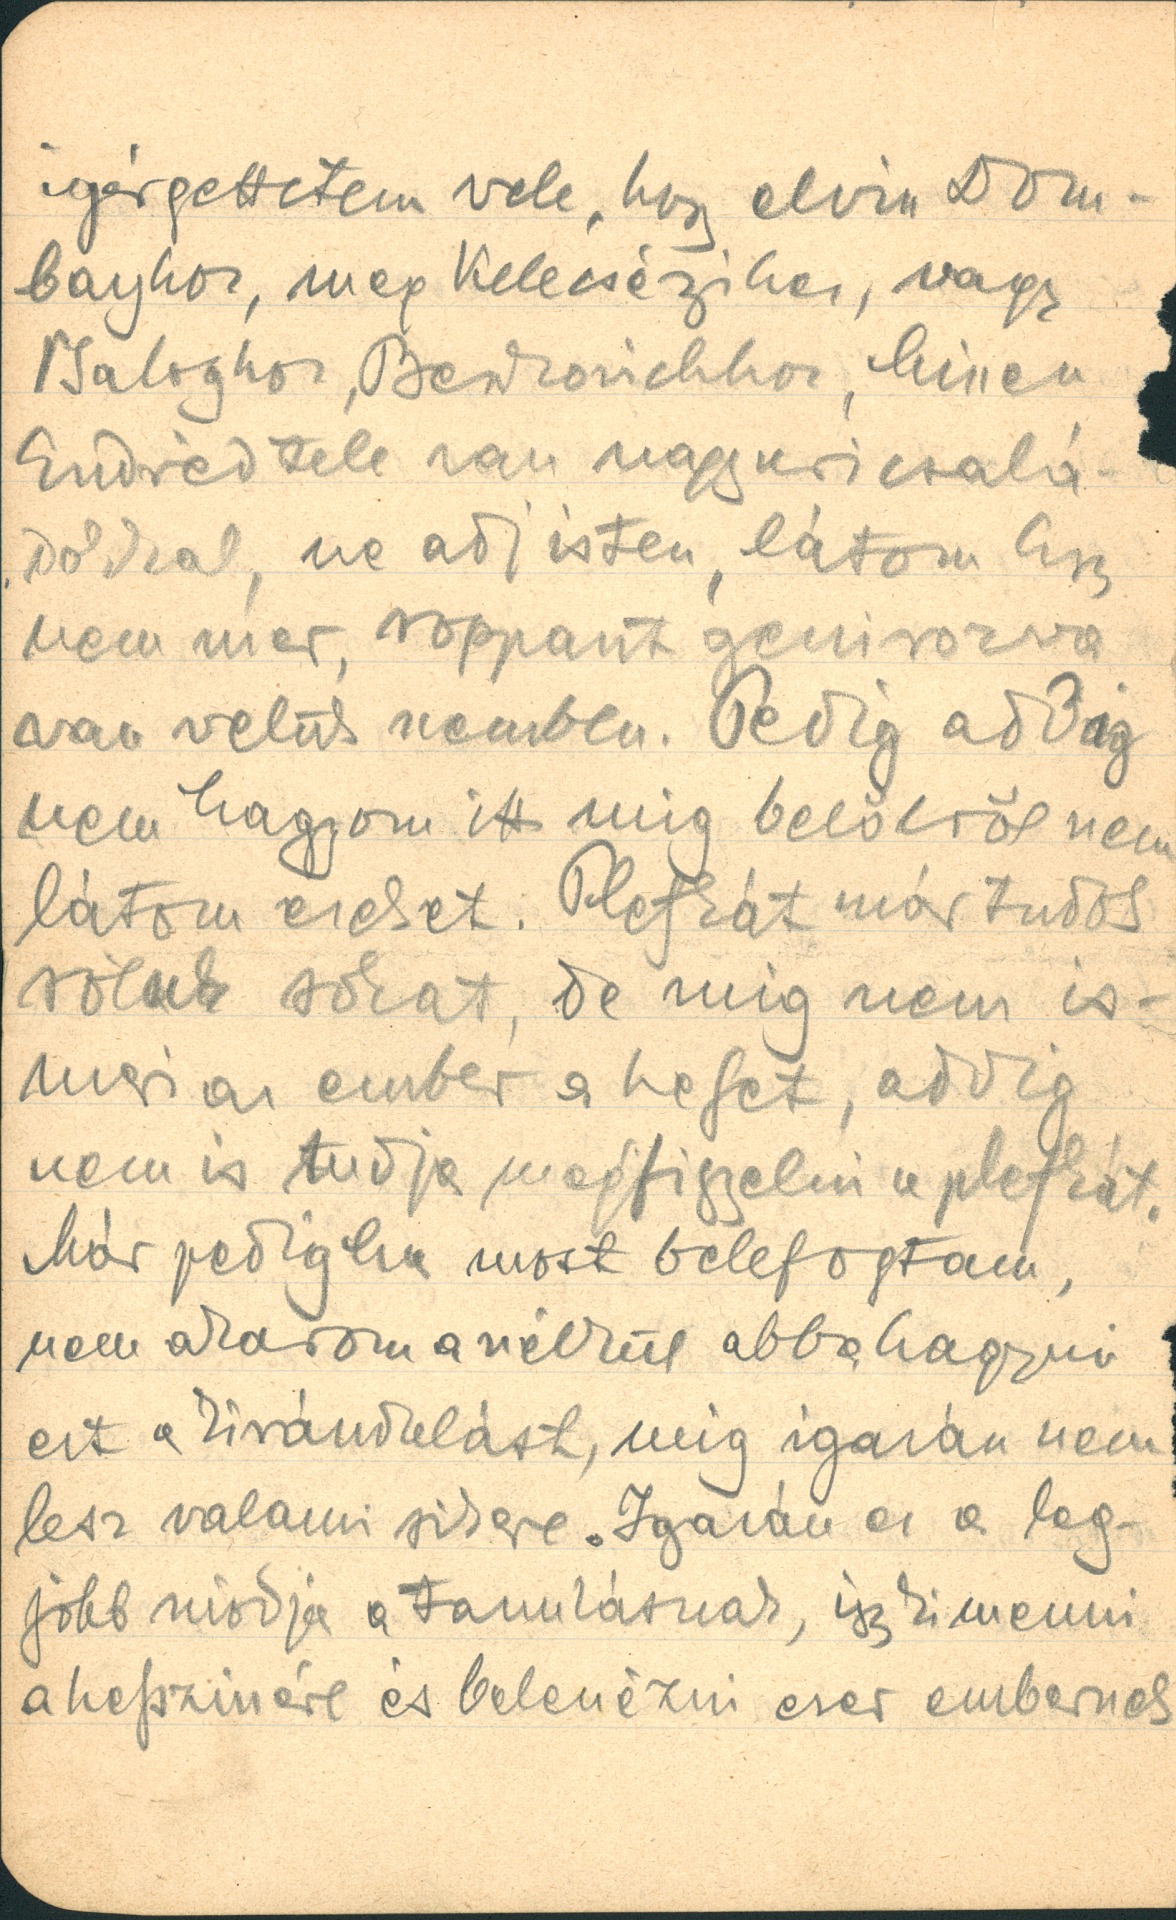 igérgettetem vele, hogy elvisz Dom-
bayhoz, meg Kelecsényihez, vagy
Baloghoz, Bezkovichhoz, hiszen
Endréd tele van nagyuricsalá-
dokkal, ne adj isten, látom hogy
nem mer, roppant génirozva
van velük szemben. Pedig addig
nem hagyom itt míg belőlről nem
látom ezeket. Plefkát már tudok
róluk sokat, de míg nem is-
meri az ember a hefet, addig
nem is tudja megfigyelni a plefkát.
Már pedig ha most belefogtam,
nem akarom a nélkül abbahagyni
ezt a kirándulást, míg igazán nem
lesz valami sikere. Igazán ez a leg-
jobb módja a tanulásnak, így kimenni
a helyszinére és belenézni ezer embernek